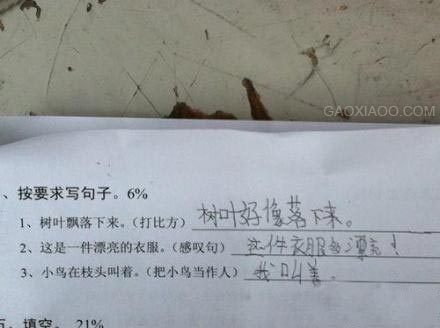 GAOXIAOO.COM
、按要求写句子。6%
1、树叶飘落下来。(打比方) 树叶好像落下来。
2、这是一件漂亮的衣服。(感叹句) 这件衣服多漂亮！
3、小鸟在枝头叫着。(把小鸟当作人) 我叫着。
、填空。 21%